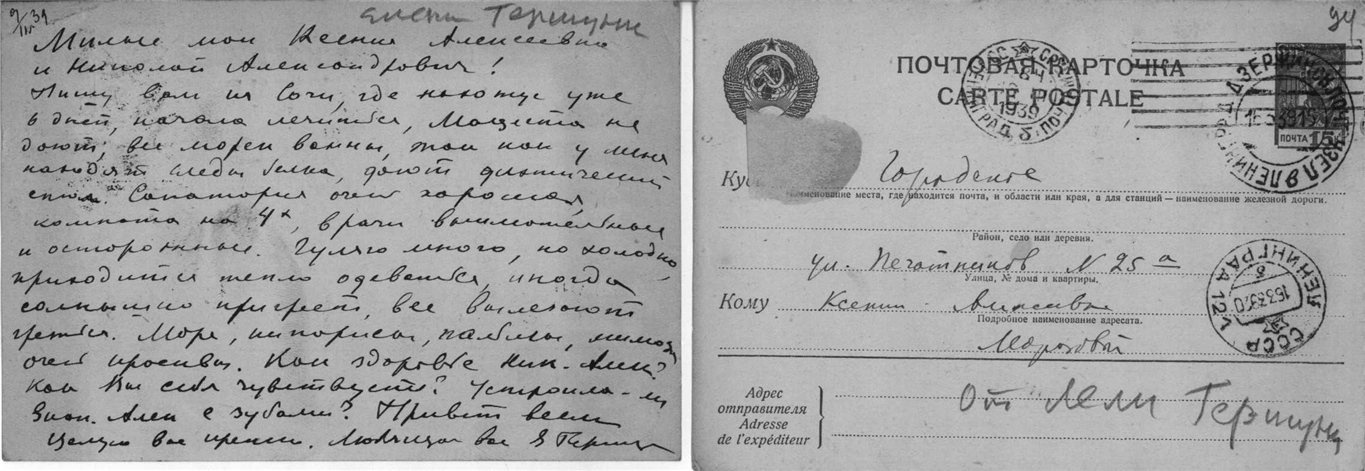 9/III 39
Елены Гершуни
Милые мои Ксения Алексеевна
и Николай Александрович!
Пишу Вам из Сочи, где нахожусь уже
6 дней, начала лечиться, Мацеста не
дают, все морск ванны, так как у меня
находят следы белка, дают диэтический
стол. Санатория очень хорошая,
комната на 4х, врачи внимательные
и осторожные. Гуляю много, но холодно,
приходится тепло одеваться, иногда
солнышко пригреет, все вылезают
греться. Море, кипарисы, пальмы, мимозы
очень красивы. Как здоровье Ник. Алек?
Как Вы себя чувствуете? Устроила-ли
Алек с зубами? Привет всем
Целую Вас крепко. Любящая Вас Е Гершуни
94
ПОЧТОВАЯ КАРТОЧКА
CARTE POSTALE
СССР
ЛЕНИНГРАД
1939
ПОЧТА 15
Куда
наименование места, где находится почта, и области или края, а для станций — наименование железной дороги.
Район, село или деревня.
ул. Печатников N 25 а
Улица, № дома и квартиры.
Кому Ксении Алексеевне
Подробное наименование адресата.
Морозовой
СССР ЛЕНИНГРАД 12
Адрес
отправителя
Adresse
de l'expéditeur
От Лели Гершуни